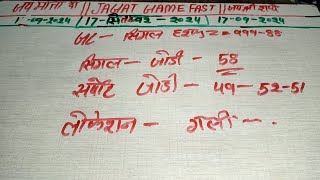 जय माता दी || JAGAT GAME FAST || जय श्री राधे
1-09-2024 || 17-सितम्बर-2024 || 17-09-2024
GL- सिंगल हरूफ = 999-88
सिंगल - जोडी - 58
सपोर्ट जोडी - 49-52-51
लोकेशन - गली -